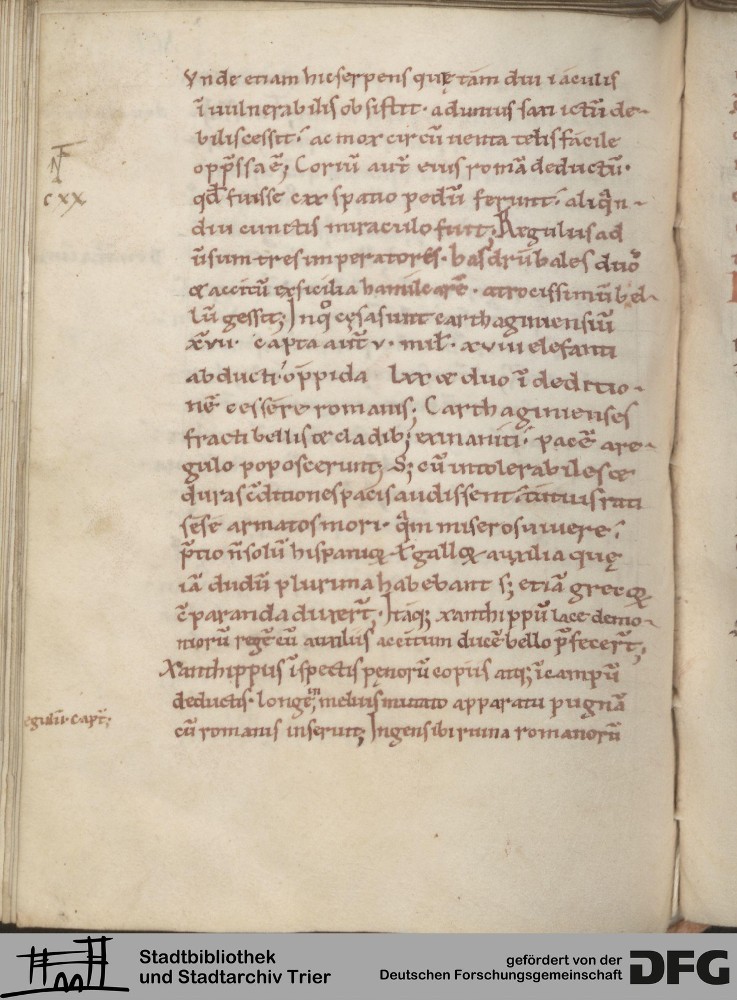 N̄
cxx
Vnde etiam hic serpens quę tam diu iaculis
īuulnerabilis obsistit· ad unius saxi ictū de-
bilis cessit; ac mox circū uenta telis facile
opp̄ssa ē; Coriū aut̄ eius romā deductū·
qđ fuisse cxx spatio pedū ferunt; aliq̄n-
diu cunctis miraculo fuit; Regulus ad
ūsum tres imperatores· hasdrubales duo
& accitū ex sicilia hamilcarē· atrocissimū bel-
lū gessit; In quo cęsa sunt carthaginiensiū
x̄vii· capta aut̄ v· mil̄· xviii elefanti
abducti· oppida lxx & duo ī deditio-
nē cessere romanis; Carthaginienses
fracti bellis & cladib; exinaniti; pacē a re-
gulo poposcerunt; S; cū intolerabiles &
duras c̄ditiones pacis audissent; tutius rati
sese armatos mori· q̄m miseros uiuere;
p̄tio n̄ solū hispanorꝝ ł gallorꝝ auxilia quę
iā dudū plurima habebant s; etiā grecorꝝ
c̄paranda duxer̄t· Itaq; xanthippū lacedemo-
niorū regē cū auxiliis accitum ducē bello p̄fecer̄t;
Xanthippus īspectis pęnorū copiis atq; ī campū
deductis· longe in melius mutato apparatu pugnā
cū romanis inserunt; Ingens ibi ruina romanorū
egulus· capt̄;
Stadtbibliothek
und Stadtarchiv Trier
gefördert von der
Deutschen Forschungsgemeinschaft
DFG